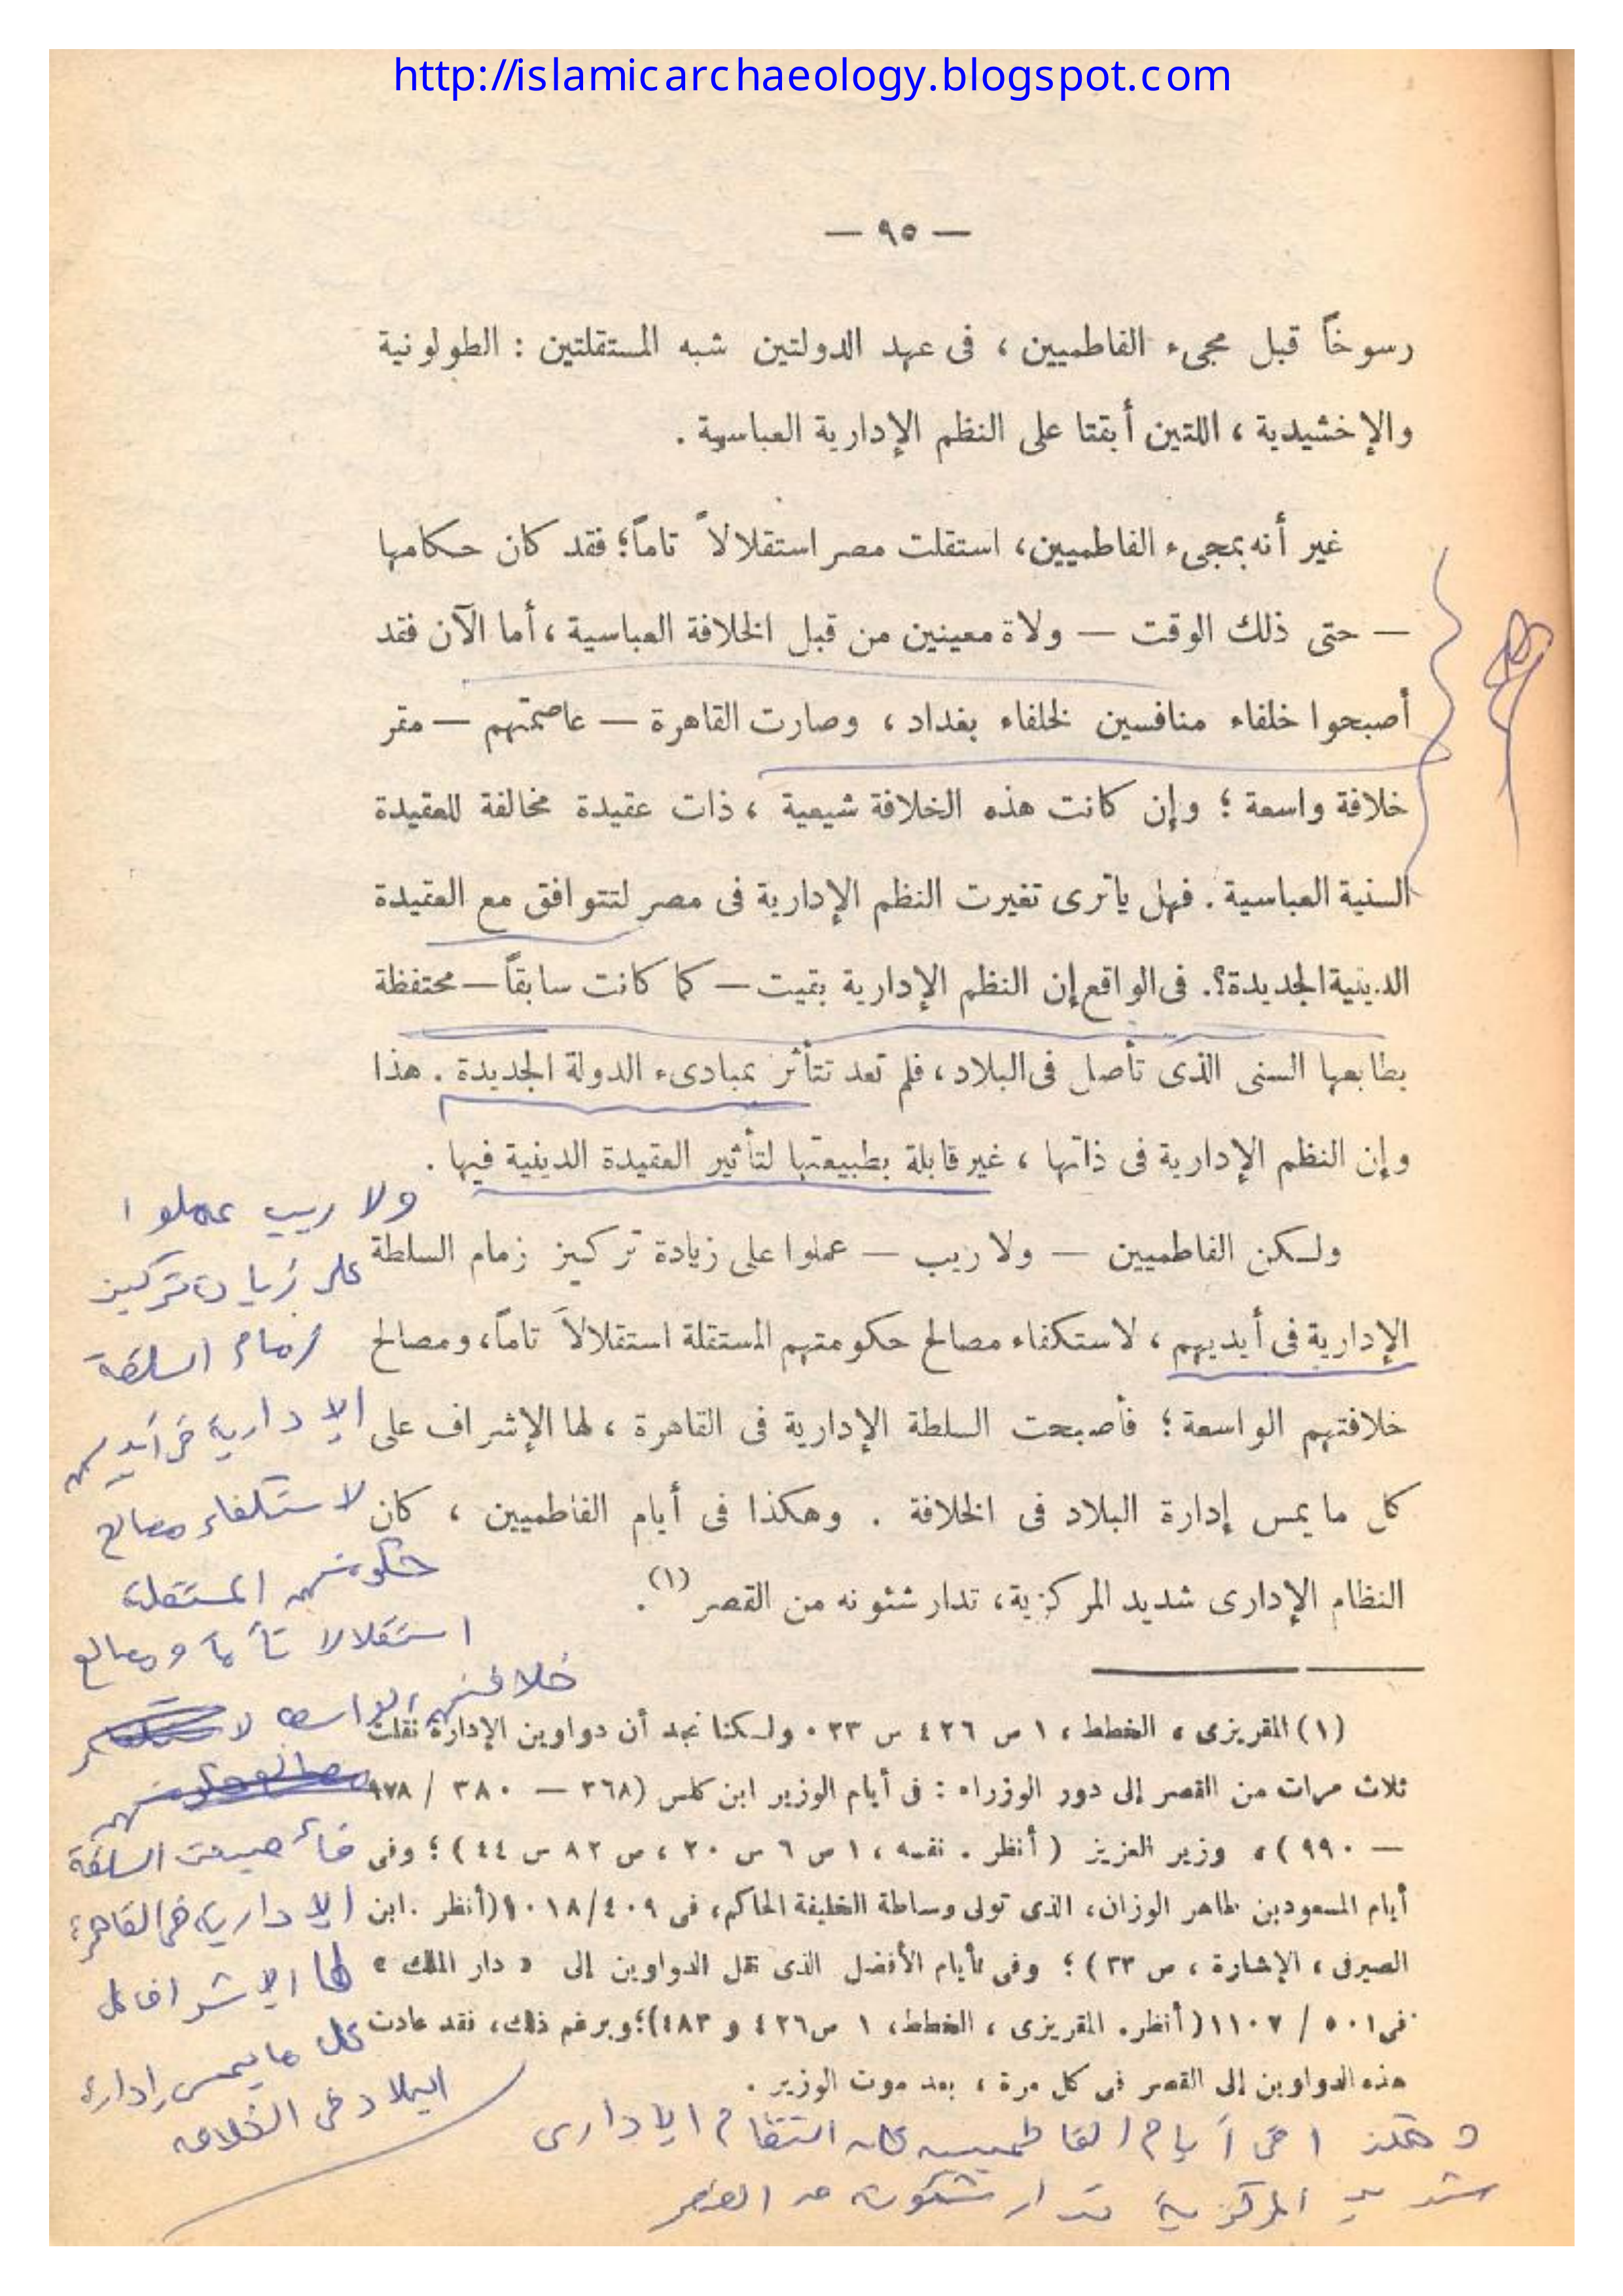 http://islamicarchaeology.blogspot.com
— ٩٥ —
رسوخاً قبل مجىء الفاطميين ، فى عهد الدولتين شبه المستقلتين : الطولونية
والإخشيدية ، اللتين أبقتا على النظم الإدارية العباسية .
غير أنه بمجىء الفاطميين، استقلت مصر استقلالاً تاماً؛ فقد كان حكامها
— حتى ذلك الوقت — ولاة معينين من قبل الخلافة العباسية ، أما الآن فقد
أصبحوا خلفاء منافسين لخلفاء بغداد ، وصارت القاهرة — عاصمتهم — مقر
خلافة واسعة ؛ وإن كانت هذه الخلافة شيعية ، ذات عقيدة مخالفة للعقيدة
السنية العباسية . فهل ياترى تغيرت النظم الإدارية فى مصر لتتوافق مع العقيدة
الدينية الجديدة؟. فى الواقع إن النظم الإدارية بقيت — كما كانت سابقاً — محتفظة
بطابعها السنى الذى تأصل فى البلاد ، فلم تعد تتأثر بمبادىء الدولة الجديدة . هذا
وإن النظم الإدارية فى ذاتها ، غير قابلة بطبيعتها لتأثير العقيدة الدينية فيها .
ولكن الفاطميين — ولا ريب — عملوا على زيادة تركيز زمام السلطة
الإدارية فى أيديهم ، لاستكفاء مصالح حكومتهم المستقلة استقلالاً تاماً، ومصالح
خلافتهم الواسعة ؛ فأصبحت السلطة الإدارية فى القاهرة ، لها الإشراف على
كل ما يمس إدارة البلاد فى الخلافة . وهكذا فى أيام الفاطميين ، كان
النظام الإدارى شديد المركزية، تدار شئونه من القصر (١).
(١) المقريزى ، الخطط ، ١ ص ٤٢٦ س ٢٣ ٠ ولكنا نجد أن دواوين الإدارة نقلت
ثلاث مرات من القصر إلى دور الوزراء : فى أيام الوزير ابن كلس (٣٦٨ — ٣٨٠ / ٩٧٨
— ٩٩٠) ، وزير العزيز ( أنظر . نفسه ، ١ ص ٦ س ٢٠ ، ص ٨٢ س ٤٤ ) ؛ وفى
أيام المسعود بن طاهر الوزان، الذى تولى وساطة الخليفة الحاكم، فى ٤٠٩/ ١٠١٨ (أنظر . ابن
الصيرفى ، الإشارة ، ص ٣٣ ) ؛ وفى أيام الأفضل الذى نقل الدواوين إلى « دار الملك »
فى ٥٠١ / ١١٠٧ ( أنظر. المقريزى ، الخطط، ١ ص ٤٢٦ و ٤٨٣)؛ وبرغم ذلك، فقد عادت
هذه الدواوين إلى القصر فى كل مرة ، بعد موت الوزير .
ولا ريب عملوا
على زيادة تركيز
زمام السلطة
الإدارية فى أيديهم
لاستكفاء مصالح
حكومتهم المستقلة
استقلالا تاماً ومصالح
خلافتهم الواسعة
فأصبحت السلطة
الإدارية فى القاهرة
لها الإشراف على
كل ما يمس إدارة
البلاد فى الخلافة
وهكذا فى أيام الفاطميين كان النظام الإدارى
شديد المركزية تدار شئونه من القصر